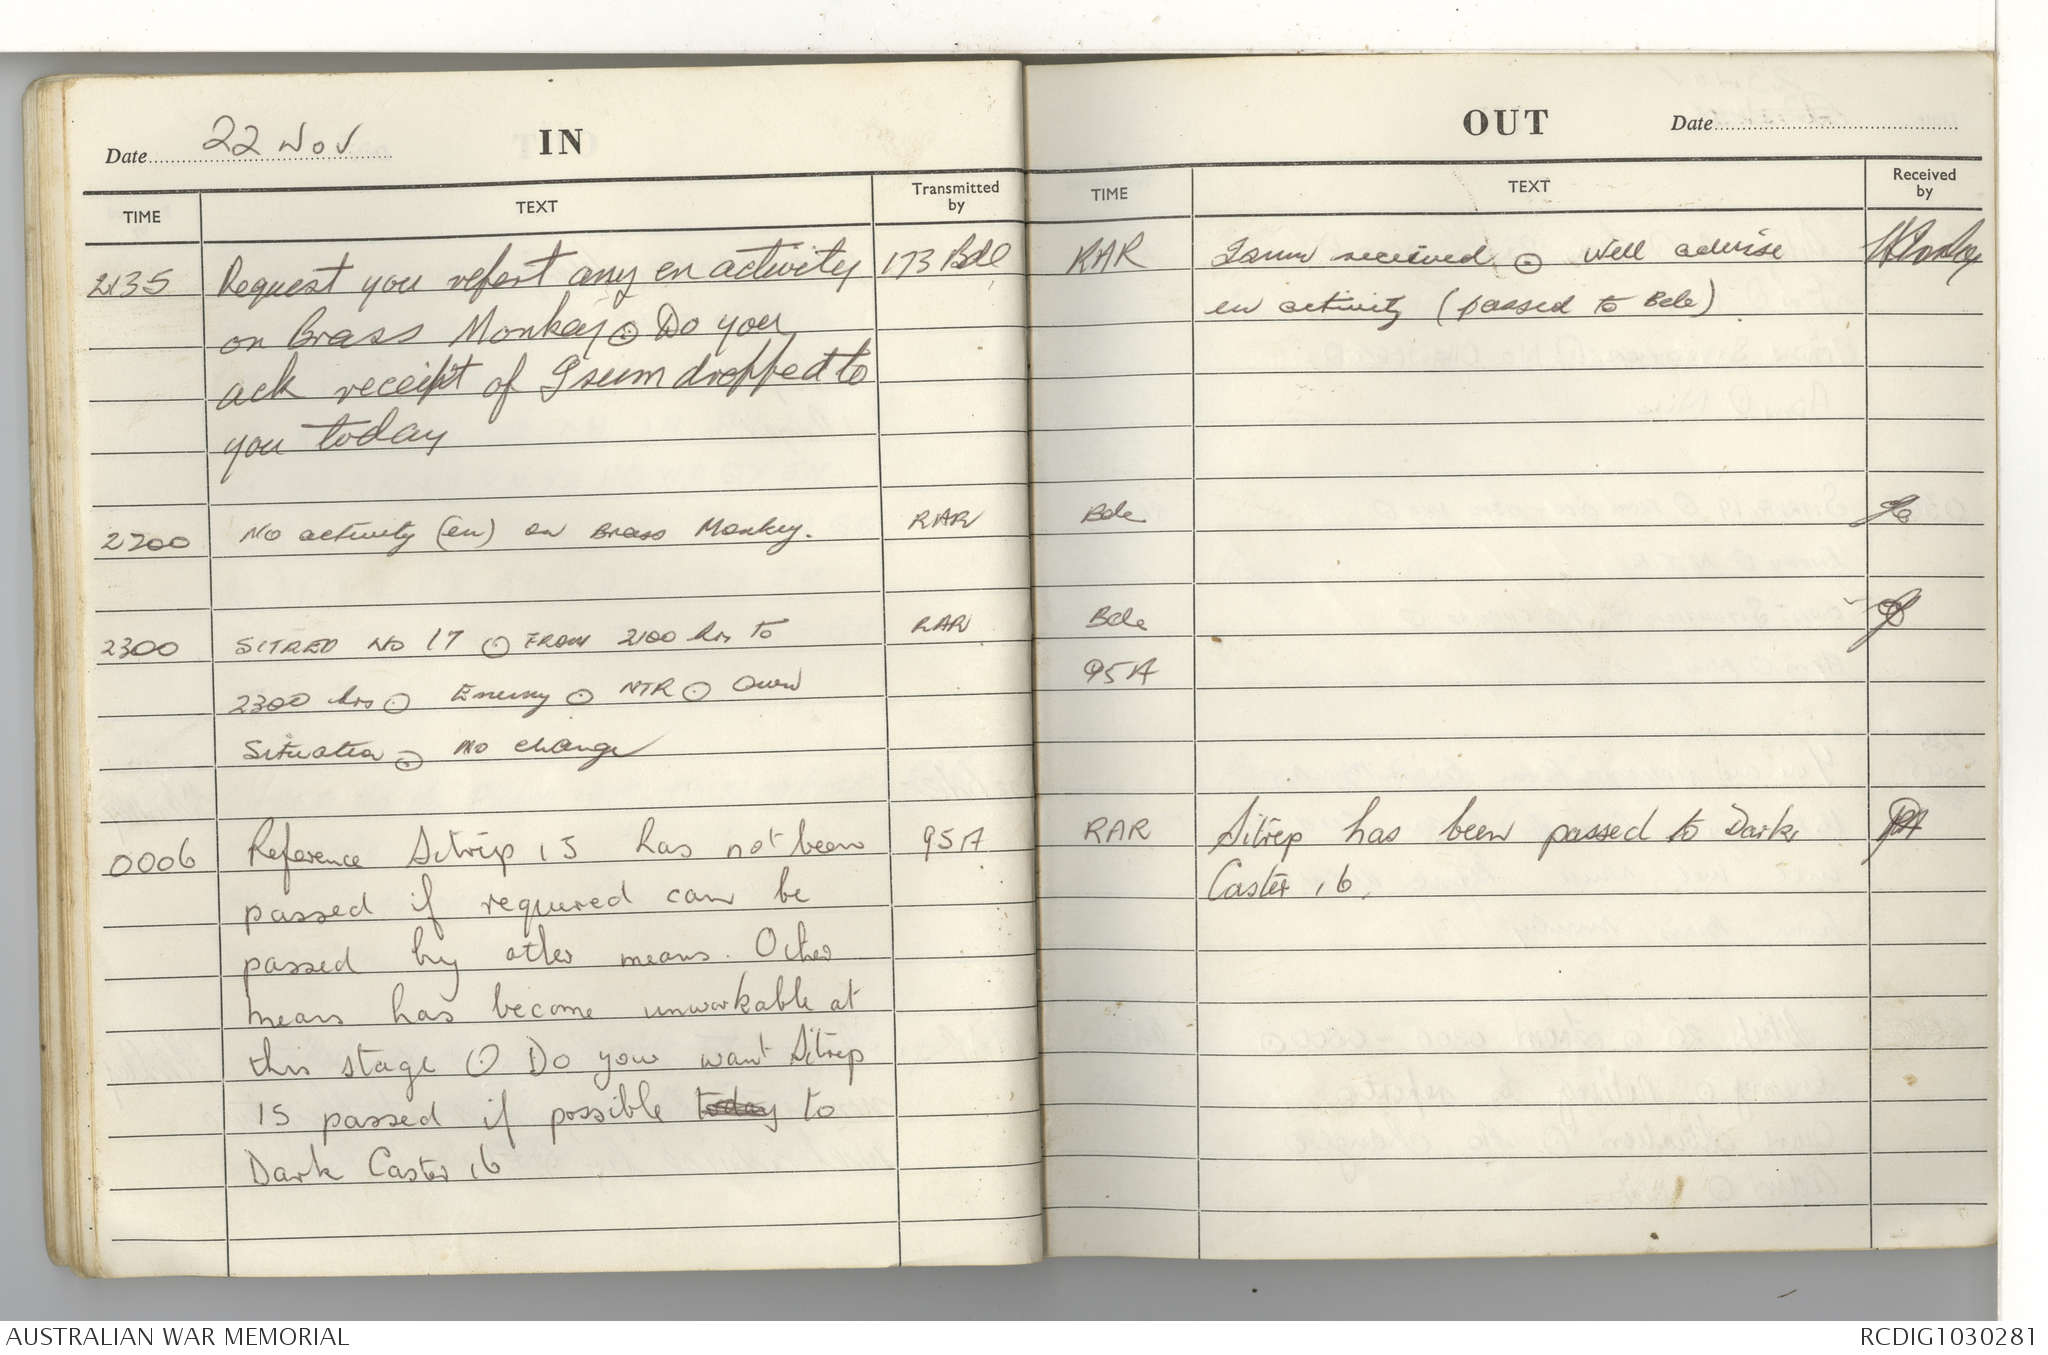 Date 22 Nov IN
TIME TEXT Transmitted by
2135 Request you report any en activity 173 Bde
on Brass Monkey ⊙ Do you
ack receipt of Isum dropped to
you today
2200 No activity (en) on Brass Monkey. RAR
2300 SITREP NO 17 ⊙ FROM 2100 hrs to RAR
2300 hrs ⊙ Enemy ⊙ NTR ⊙ Own
Situation ⊙ No change
0006 Reference Sitrep 15 has not been 95A
passed if required can be
passed by other means. Other
means has become unworkable at
this stage ⊙ Do you want Sitrep
15 passed if possible today to
Dark Caster 16
OUT Date
TIME TEXT Received by
RAR Isum received ⊙ Will advise
en activity (passed to Bde)
Bde
Bde
95A
RAR Sitrep has been passed to Dark
Caster 16.
AUSTRALIAN WAR MEMORIAL RCDIG1030281